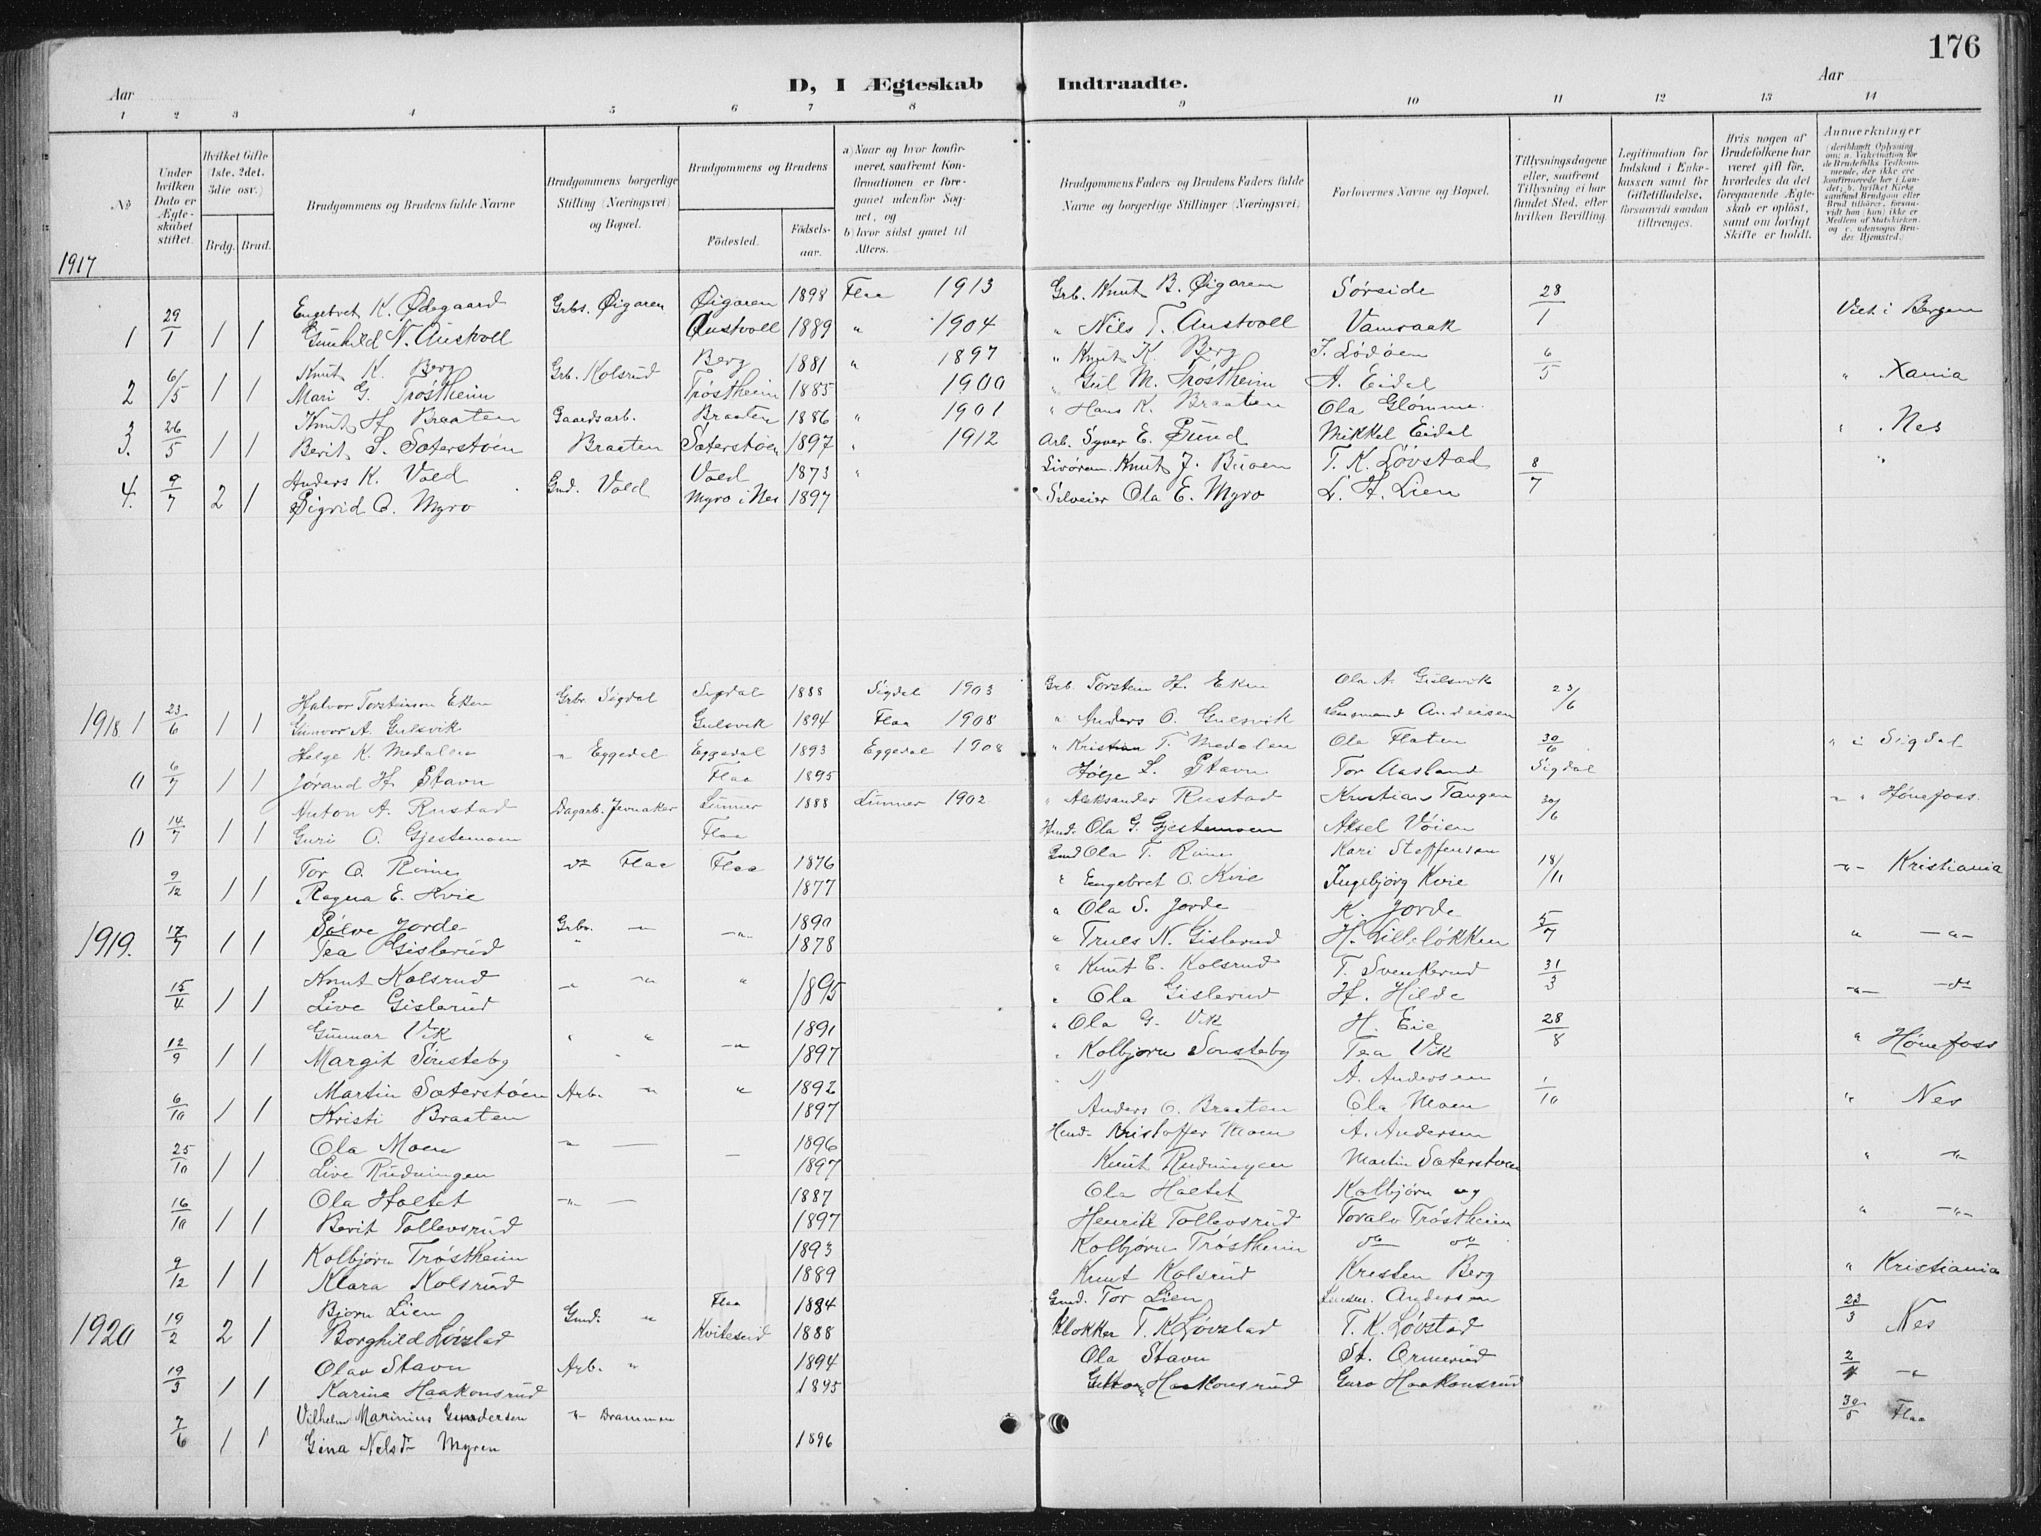 176
D, I Ægteskab Indtraadte.
Aar Aar
1 2 3 4 5 6 7 8 9 10 11 12 13 14
No.
Under hvilken Dato er Ægteskabet stiftet.
Hvilket Gifte (1ste. 2det. 3die osv.)
Brdg. Brud.
Brudgommens og Brudens fulde Navne
Brudgommens borgerlige Stilling (Næringsvei) og Bopæl.
Brudgommens og Brudens
Fødested. Fødselsaar.
a) Naar og hvor konfirmeret, saafremt Konfirmationen er foregaaet udenfor Sognet, og
b) hvor sidst gaaet til Alters.
Brudgommens Faders og Brudens Faders fulde Navne og borgerlige Stillinger (Næringsvei)
Forlovernes Navne og Bopæl.
Tillysningsdagene eller, saafremt Tillysning ei har fundet Sted, efter hvilken Bevilling.
Legitimation for Indskud i Enkekassen samt for Giftetilladelse, forsaavidt saadan tiltrænges.
Hvis nogen af Brudefolkene har været gift før, hvorledes da det foregaaende Ægteskab er opløst, samt om lovligt Skifte er holdt.
Anmerkninger (deriblandt Oplysning om: a. Vakcination for de Brudefolks Vedkommende, der ikke ere konfirmerede her i Landet; b. hvilket Kirkesamfund Brudgom eller Brud tilhører, forsaavidt han (hun) ikke er Medlem af Statskirken, og c. udensogns Brudes Hjemsted.)
1917
Engebret K. Ødegaard Grbs. Øigaren Øigaren 1898 Flaa 1913 Grb. Knut B. Øigaren Sørside 28/1 Viet i Bergen
1 29/1 1 1 Gunhild N. Austvoll Austvoll 1889 " 1904 " Nils T. Austvoll Vamraak
Knut K. Berg Grb. Kolsrud Berg 1881 " 1897 " Knut K. Berg J. Lødøen 6/5 " Xania
2 6/5 1 1 Mari G. Trøstheim Trøstheim 1885 1900 " Gul M. Trøstheim A. Eidal
Knut H. Braaten Gaardsarb. Braaten 1886 " 1901 " Hans K. Braaten Ola Glømme " Nes
3. 26/5 1 1 Berit S. Sæterstøen Braaten Sæterstøen 1897 " 1912 Arb. Syver E. Sund Mikkel Eidal
Anders K. Vold Gmd. Vold Vold 1873 " Knut J. Buoen T. K. Løvstad 8/7 "
4. 9/7 2 1 Sigrid O. Myro Myro i Nes 1897 Ola E. Myro L. H. Lien
Halvor Torsteinson Eken Grbr Sigdal Sigdal 1888 Sigdal 1903 Grb. Torstein H. Eken Ola A. Gulsvik 23/6
1918 1 23/6 1 1 Gunvor A. Gulsvik Gulsvik 1894 Flaa 1908 " Anders O. Gulsvik Lensmand Andersen
Helge K. Medalen " Eggedal Eggedal 1893 Eggedal 1908 " Kristian T. Medalen Ola Flaten 30/6 " i Sigdal
0 6/7 1 1 Jørand H. Stavn Flaa 1895 Helge S. Stavn Tor Aasland Sigdal
Anton A. Rustad Dagarb. Jevnaker Lunner 1888 Lunner 1902 " Aleksander Rustad Kristian Tangen 30/6 " " Hønefoss.
0 14/7 1 1 Guri O. Gjestemoen Flaa Hmd. Ola G. Gjestemoen Aksel Vøien
Tor O. Roime do Flaa Flaa 1876 Gmd Ola T. Roime Kari Steffensen 18/11 " Kristiania
9/12 1 1 Ragna E. Kvie 1877 " Engebret O. Kvie Ingebjørg Kvie
Sølve Jorde Grbr. " " 1890 " Ola S. Jorde K. Jorde 5/7
1919. 17/7 1 1 Tea Gislerud " 1878 " Truls N. Gislerud H. Lilleløkken " "
Knut Kolsrud " " " 1895 " Knut E. Kolsrud T. Svenkerud 31/3
15/4 1 1 Live Gislerud " Ola Gislerud H. Hilde " do
Gunnar Vik " " 1891 " Ola G. Vik H. Eie 28/8 " Hønefoss
12/9 1 1 Margit Sønsteby " " 1897 " Kolbjørn Sønsteby Tea Vik
Martin Sæterstøen Arb. " " 1892 " A. Andersen 1/10 " Nes
6/10 1 1 Kristi Braaten 1897 Anders O. Braaten Ola Moen
Ola Moen " 1896 Kristoffer Moen A. Andersen
25/10 1 1 Live Rudningen 1897 Knut Rudningen Martin Sæterstøen " "
Ola Holtet " 1887 Ola Holtet Kolbjørn og
16/10 1 1 Berit Tollevsrud 1897 Henrik Tollevsrud Toralv Trøstheim " "
Kolbjørn Trøstheim 1893 Kolbjørn Trøstheim do do
9/12 1 1 Klara Kolsrud 1889 Knut Kolsrud Kristen Berg " Kristiania
Bjørn Lien Gmd. " Flaa 1884 Gmd. Tor Lien Lensm. Andersen 23/3 Nes
1920 19/2 2 1 Borghild Løvstad Kviteseid 1888 Klokker T. K. Løvstad T. K. Løvstad
Olav Stavn Arb. " 1894 Ola Stavn St. Ormerud 2/4 "
19/3 1 1 Karina Haakonsrud 1895 Haakonsrud Guro Haakonsrud
Vilhelm Marinius Gundersen " Drammen 30/5 Flaa
7/6 1 1 Gina Nelsd. Myren 1896